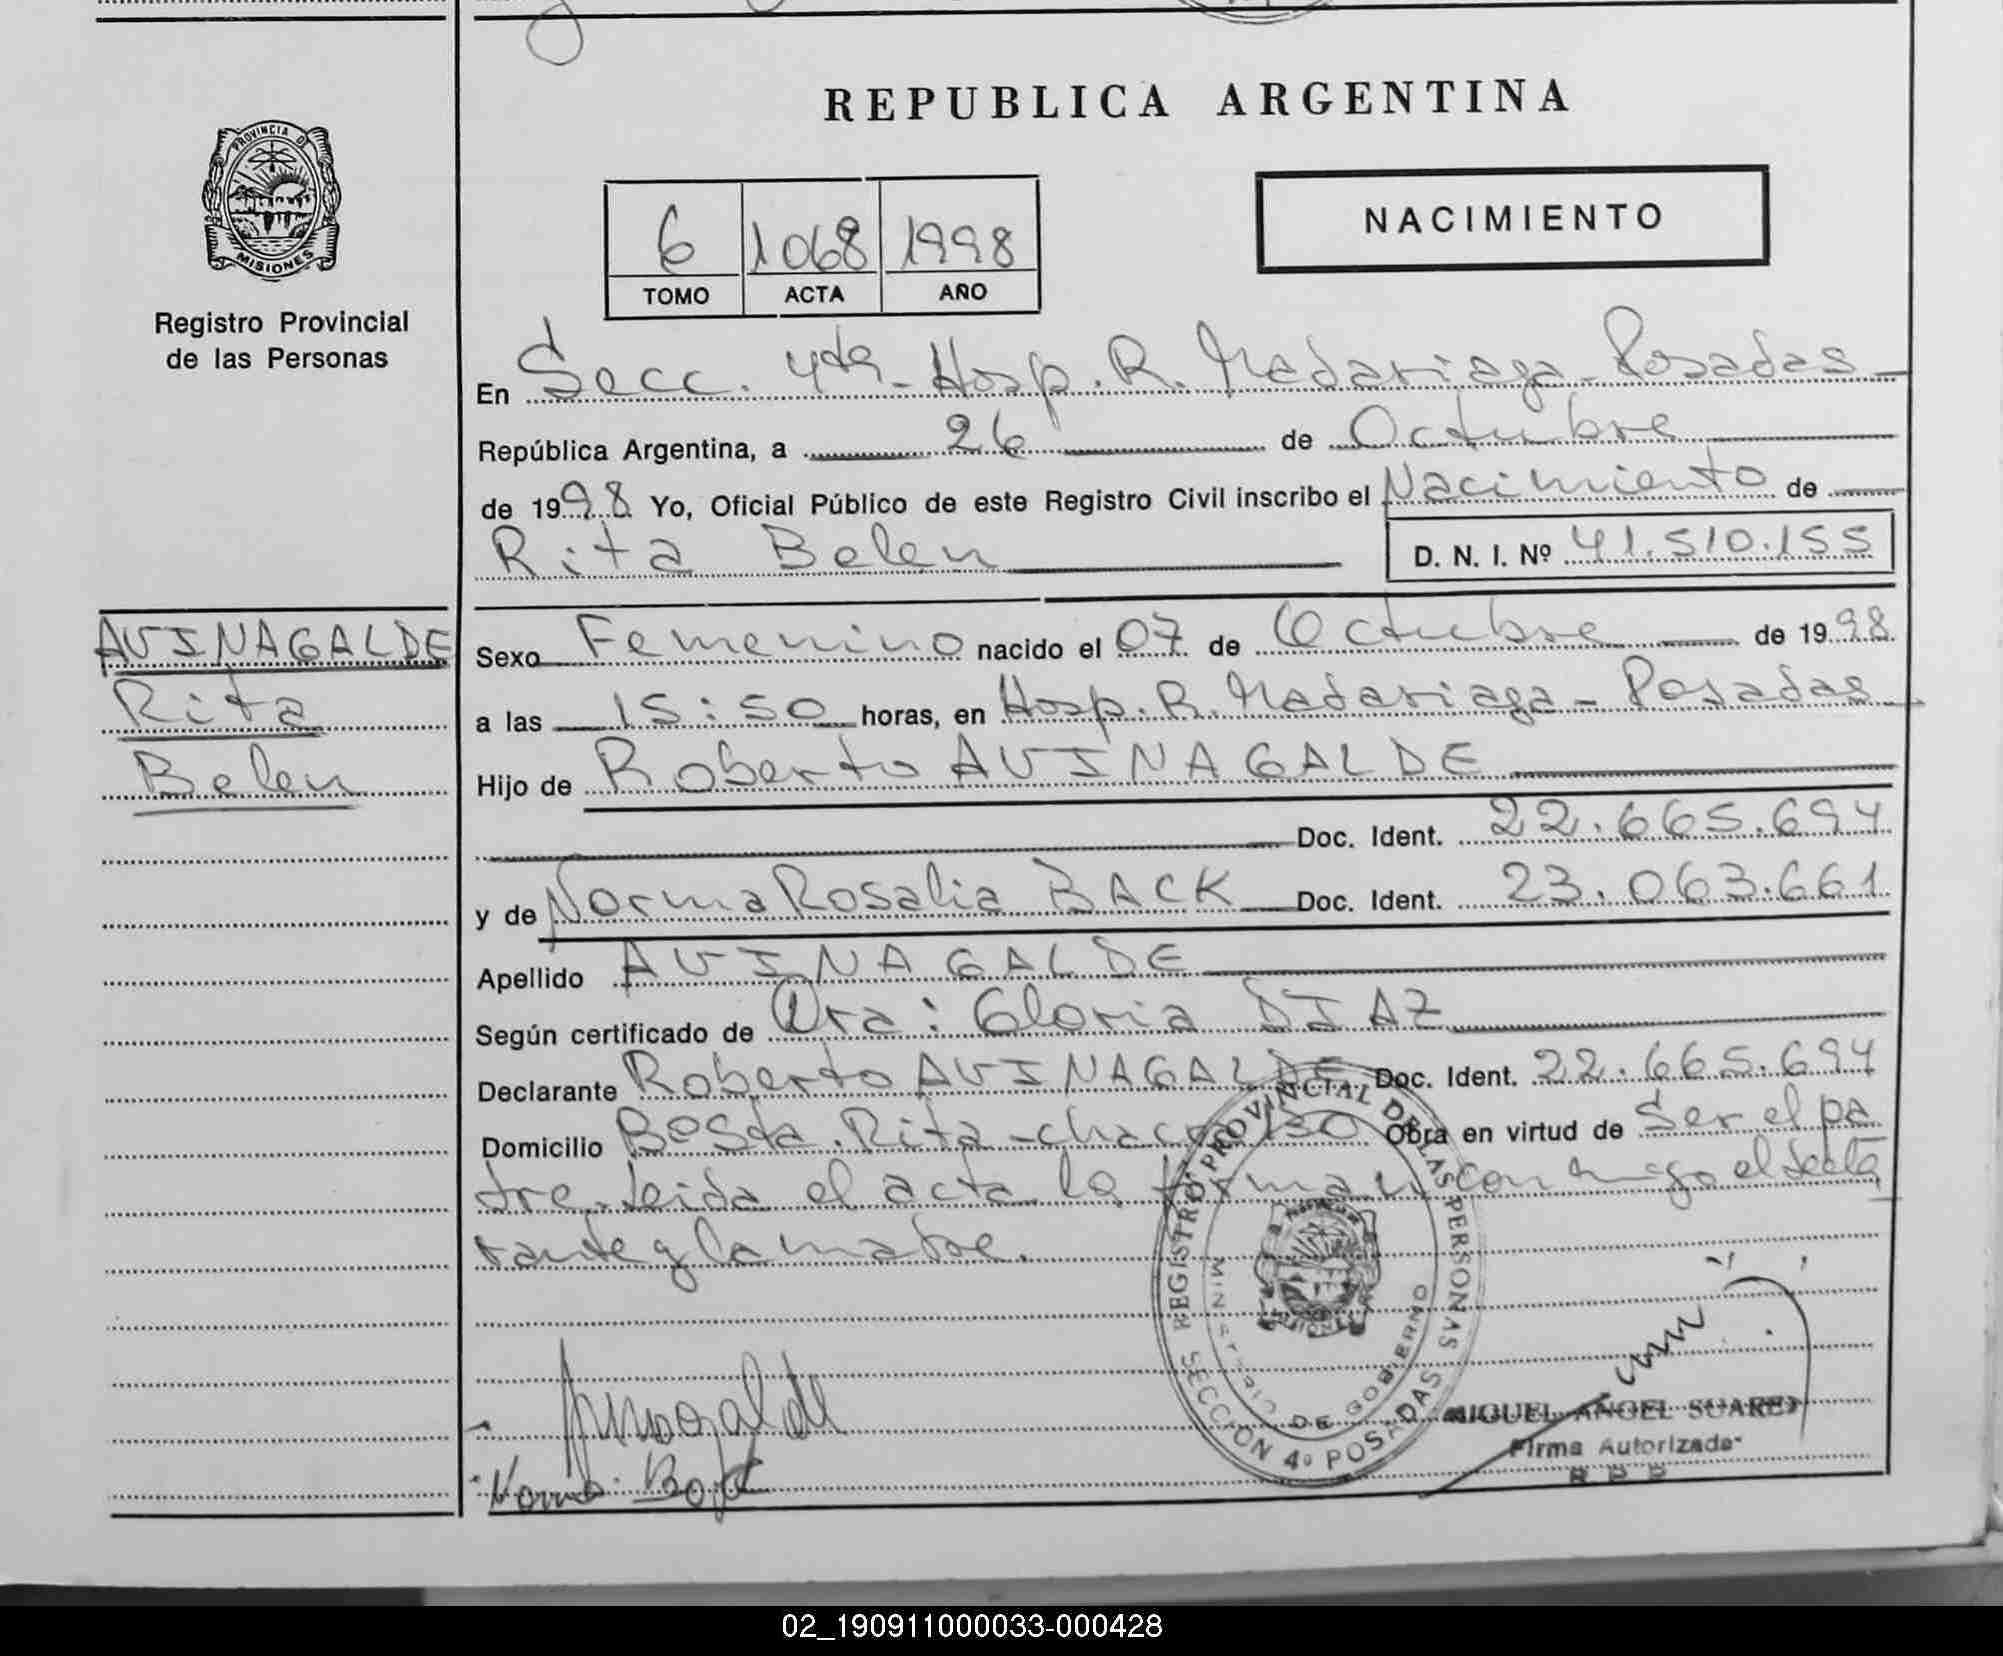 REPUBLICA ARGENTINA
PROVINCIA DE
MISIONES
Registro Provincial
de las Personas
NACIMIENTO
6 1068 1998
TOMO ACTA AÑO
En Secc. 4ta - Hosp. R. Madariaga - Posadas
República Argentina, a 26 de Octubre
de 1998 Yo, Oficial Público de este Registro Civil inscribo el Nacimiento de
Rita Belen D. N. I. Nº 41.510.155
AVINAGALDE
Rita
Belen
Sexo Femenino nacido el 07 de Octubre de 1998
a las 15:50 horas, en Hosp. R. Madariaga - Posadas
Hijo de Roberto AVINAGALDE
Doc. Ident. 22.665.694
y de Norma Rosalia BACK Doc. Ident. 23.063.661
Apellido AVINAGALDE
Según certificado de Dra: Gloria DIAZ
Declarante Roberto AVINAGALDE Doc. Ident. 22.665.694
Domicilio Bº Sta. Rita - chacra 130 Obra en virtud de Ser el pa
dre. Leida el acta la firman conmigo el decla
rante y la madre.
REGISTRO PROVINCIAL DE LAS PERSONAS
MINISTERIO DE GOBIERNO
MISIONES
SECCION 4º POSADAS
MIGUEL ANGEL SUAREZ
Firma Autorizada
R P P
02_190911000033-000428